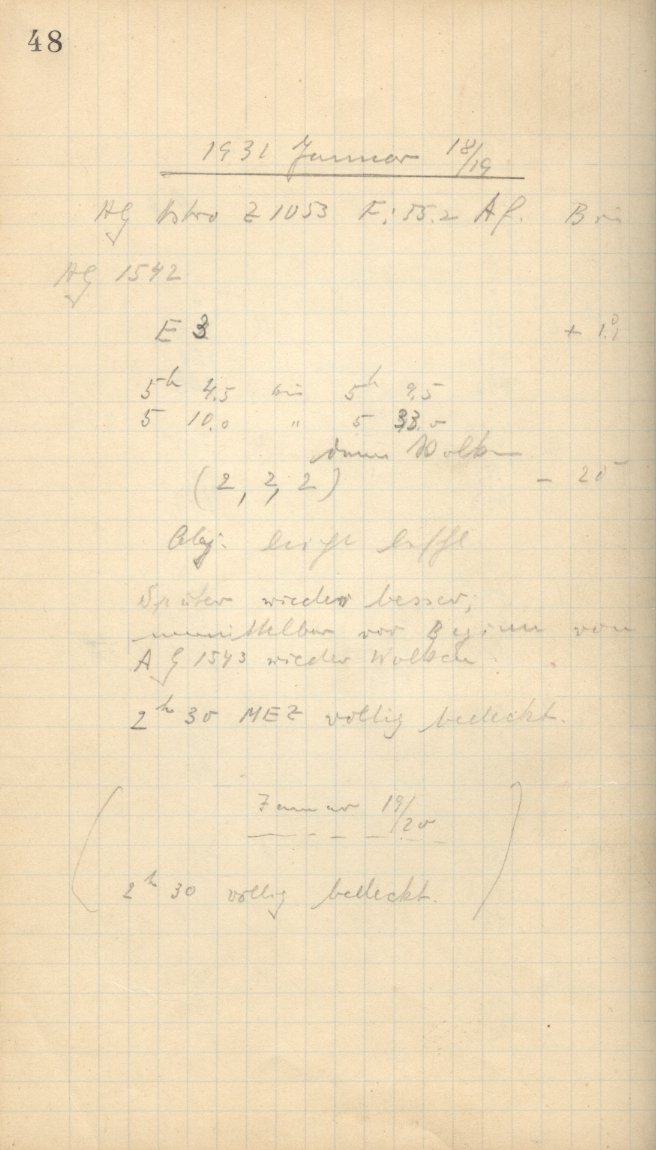 48
1931 Januar 18/19
AG Astro Z 1053 F: 55.2 Af. Bri
AG 1542
E 3 + 1.
5h 4.5 bis 5h 9.5
5 10.0 " 5 33.0
dann Wolken
(2, 2, 2) - 20
Obj: leicht
Später wieder besser;
unmittelbar vor Beginn von
AG 1543 wieder Wolken
2h 30 MEZ völlig bedeckt.
Januar 19/20
2h 30 völlig bedeckt.